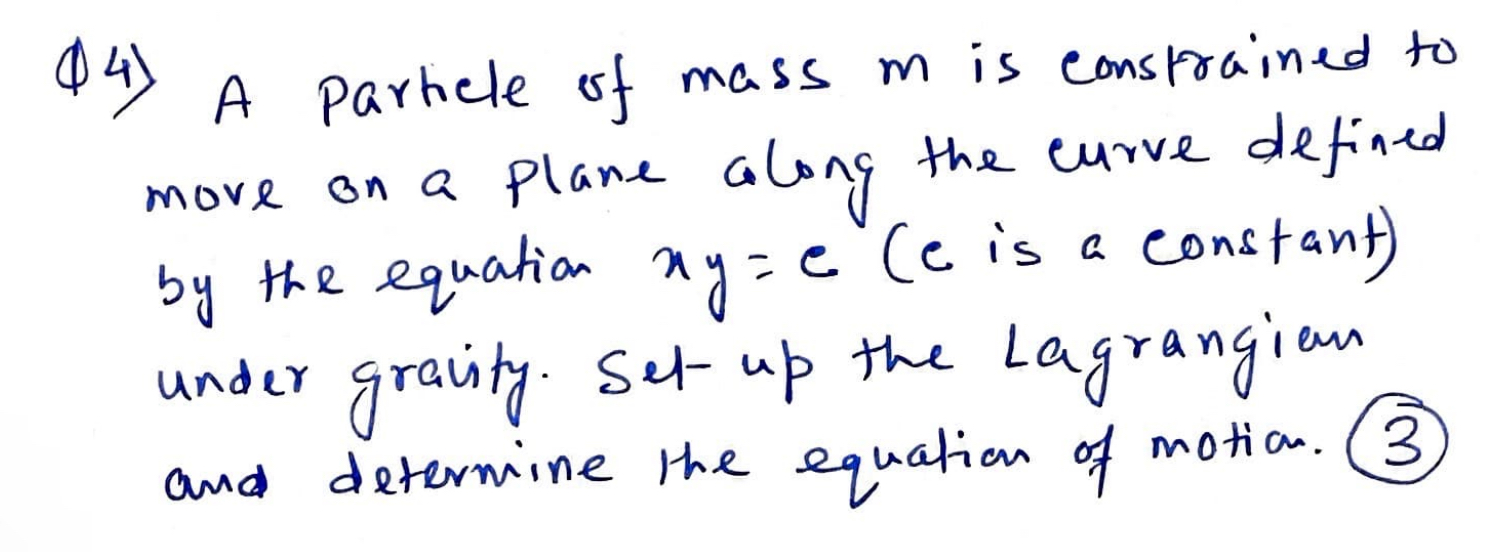 Q4) A particle of mass m is constrained to
move on a plane along the curve defined
by the equation xy = c (c is a constant)
under gravity. Set up the Lagrangian
and determine the equation of motion. (3)